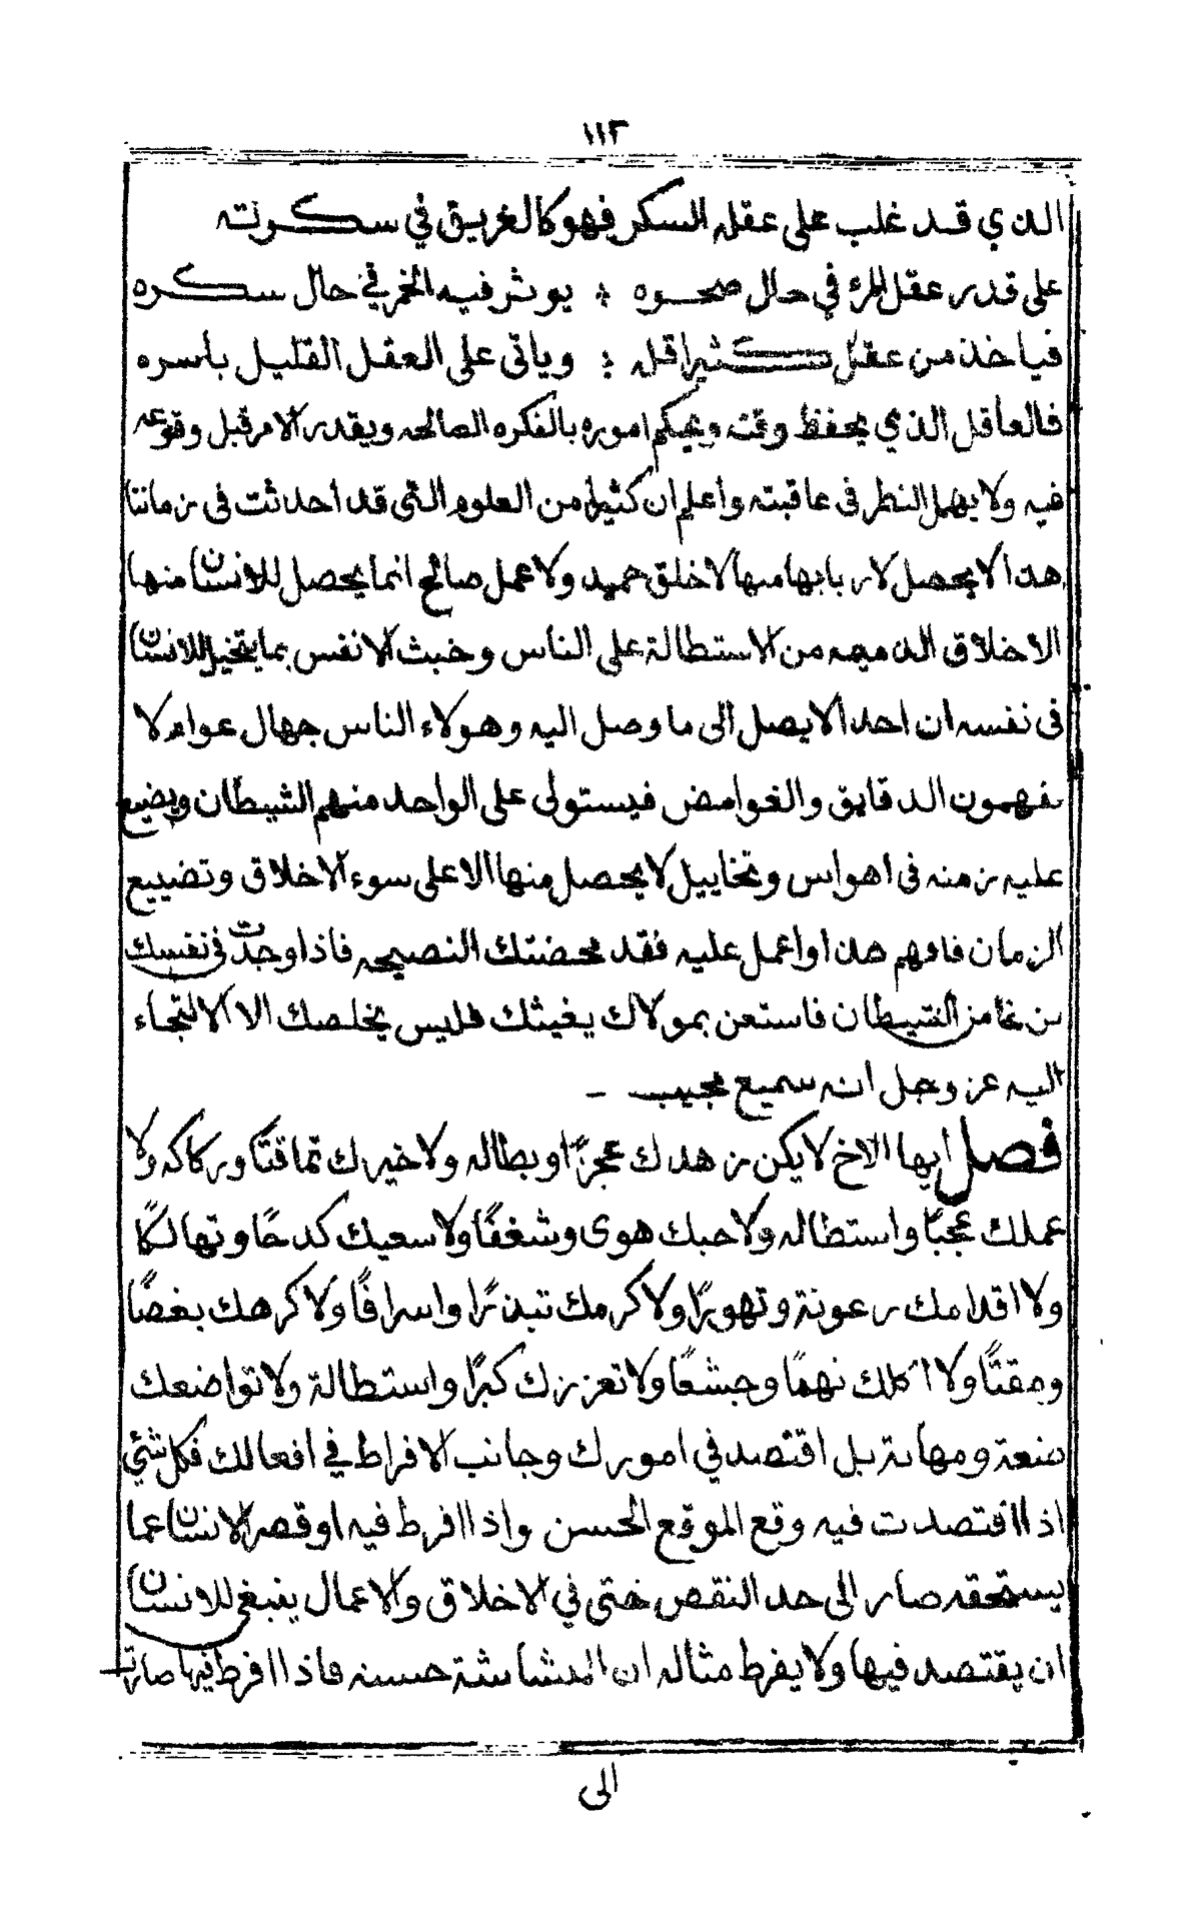 ١١٣
الذي قد غلب على عقله السكر فهو كالغريق في سكرته
على قدر عقل المرء في حال صحوه ؛ يوثر فيه الخمر في حال سكره
فياخذ من عقل كثير اقله ؛ وياتى على العقل القليل بأسره
فالعاقل الذي يحفظ وقته ويحكم اموره بالفكره الصالحه ويقدر الامر قبل وقوعه
فيه ولا يهمل النظر فى عاقبته واعلم ان كثيرا من العلوم التى قد احدثت فى زماننا
هذا لا يحصل لاربابها منها لا خلق حميد ولا عمل صالح انما يحصل للانسان منها
الاخلاق الذميمه من الاستطالة على الناس وخبث الانفس بما يتخيل للانسان
فى نفسه ان احدا لا يصل الى ما وصل اليه وهولاء الناس جهال عوام لا
يفهمون الدقايق والغوامض فيستولى على الواحد منهم الشيطان ويضيع
عليه زمنه فى اهواس وتخاييل لا يحصل منها الا على سوء الاخلاق وتضييع
الزمان فافهم هذا واعمل عليه فقد محضتك النصيحه فاذا وجدت فى نفسك
من غامز الشيطان فاستعن بمولاك يغيثك فليس يخلصك الا الالتجاء
اليه عز وجل انه سميع مجيب -
فصل ايها الاخ لا يكن زهدك عجزًا وبطاله ولا خيرك تماقتًا وركاكه ولا
عملك عجبًا واستطاله ولا حبك هوى وشغفًا ولا سعيك كدحًا وتهالكًا
ولا اقدامك رعونة وتهورًا ولا كرمك تبذيرًا واسرافًا ولا كرهك بغضًا
ومقتًا ولا اكلك نهمًا وجشعًا ولا تعززك كبرًا واستطالة ولا تواضعك
ضعة ومهانة بل اقتصد في امورك وجانب الافراط في افعالك فكل شئي
اذا اقتصدت فيه وقع الموقع الحسن واذا افرط فيه او قصر الانسان عما
يستحقه صار الى حد النقص حتى في الاخلاق والاعمال ينبغى للانسان
ان يقتصد فيها ولا يفرط مثاله ان البشاشة حسنه فاذا افرط فيها صارت
الى